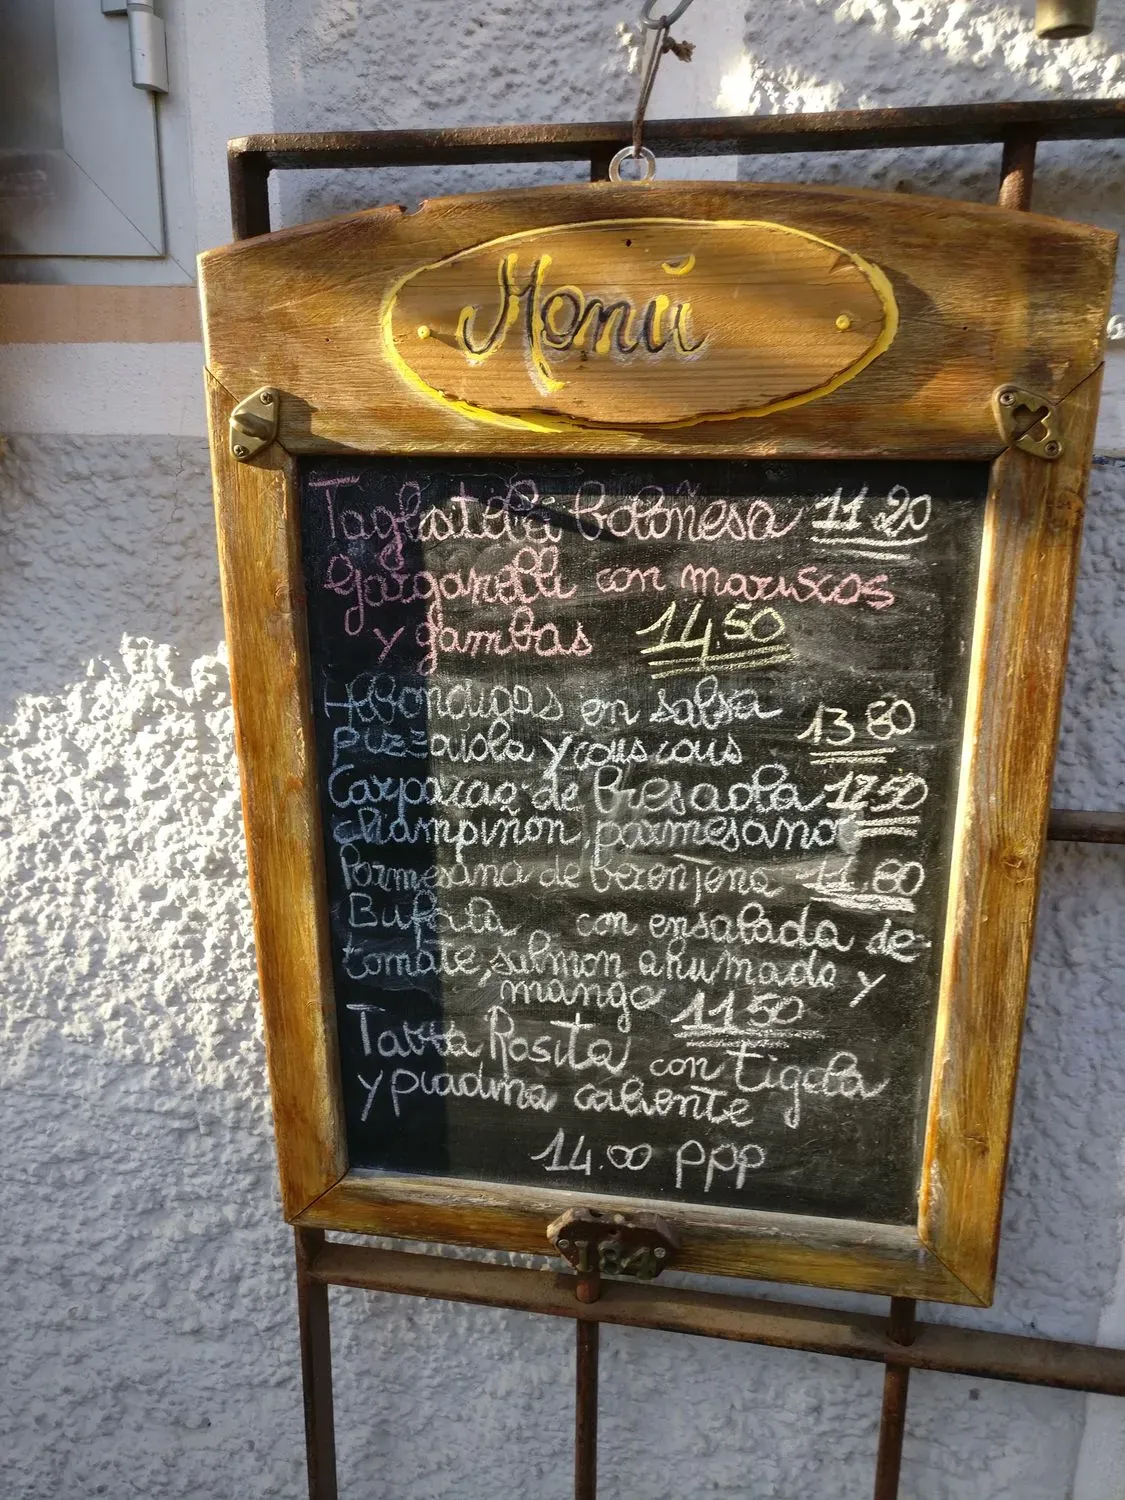 Menú
Tagliatelle boloñesa 11.20
Garganelli con mariscos
y gambas 14.50
Albondigas en salsa
pizzaiola y couscous 13.80
Carpacao de bresaola 12.50
champiñon, parmesano
Parmesana de berenjena 11.80
Bufala con ensalada de
tomate, salmon ahumado y
mango 11.50
Tabla Rosita con tigela
y piadina caliente
14.00 ppp
184